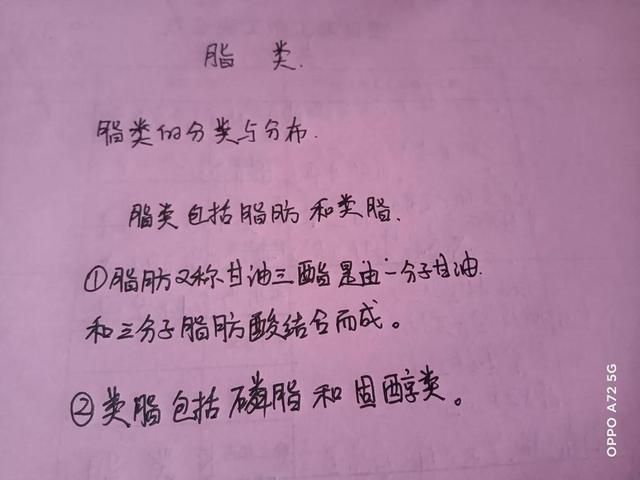 脂 类.
脂类的分类与分布.
脂类包括脂肪和类脂.
①脂肪又称甘油三酯是由一分子甘油.
和三分子脂肪酸结合而成。
②类脂包括磷脂和固醇类。
OPPO A72 5G